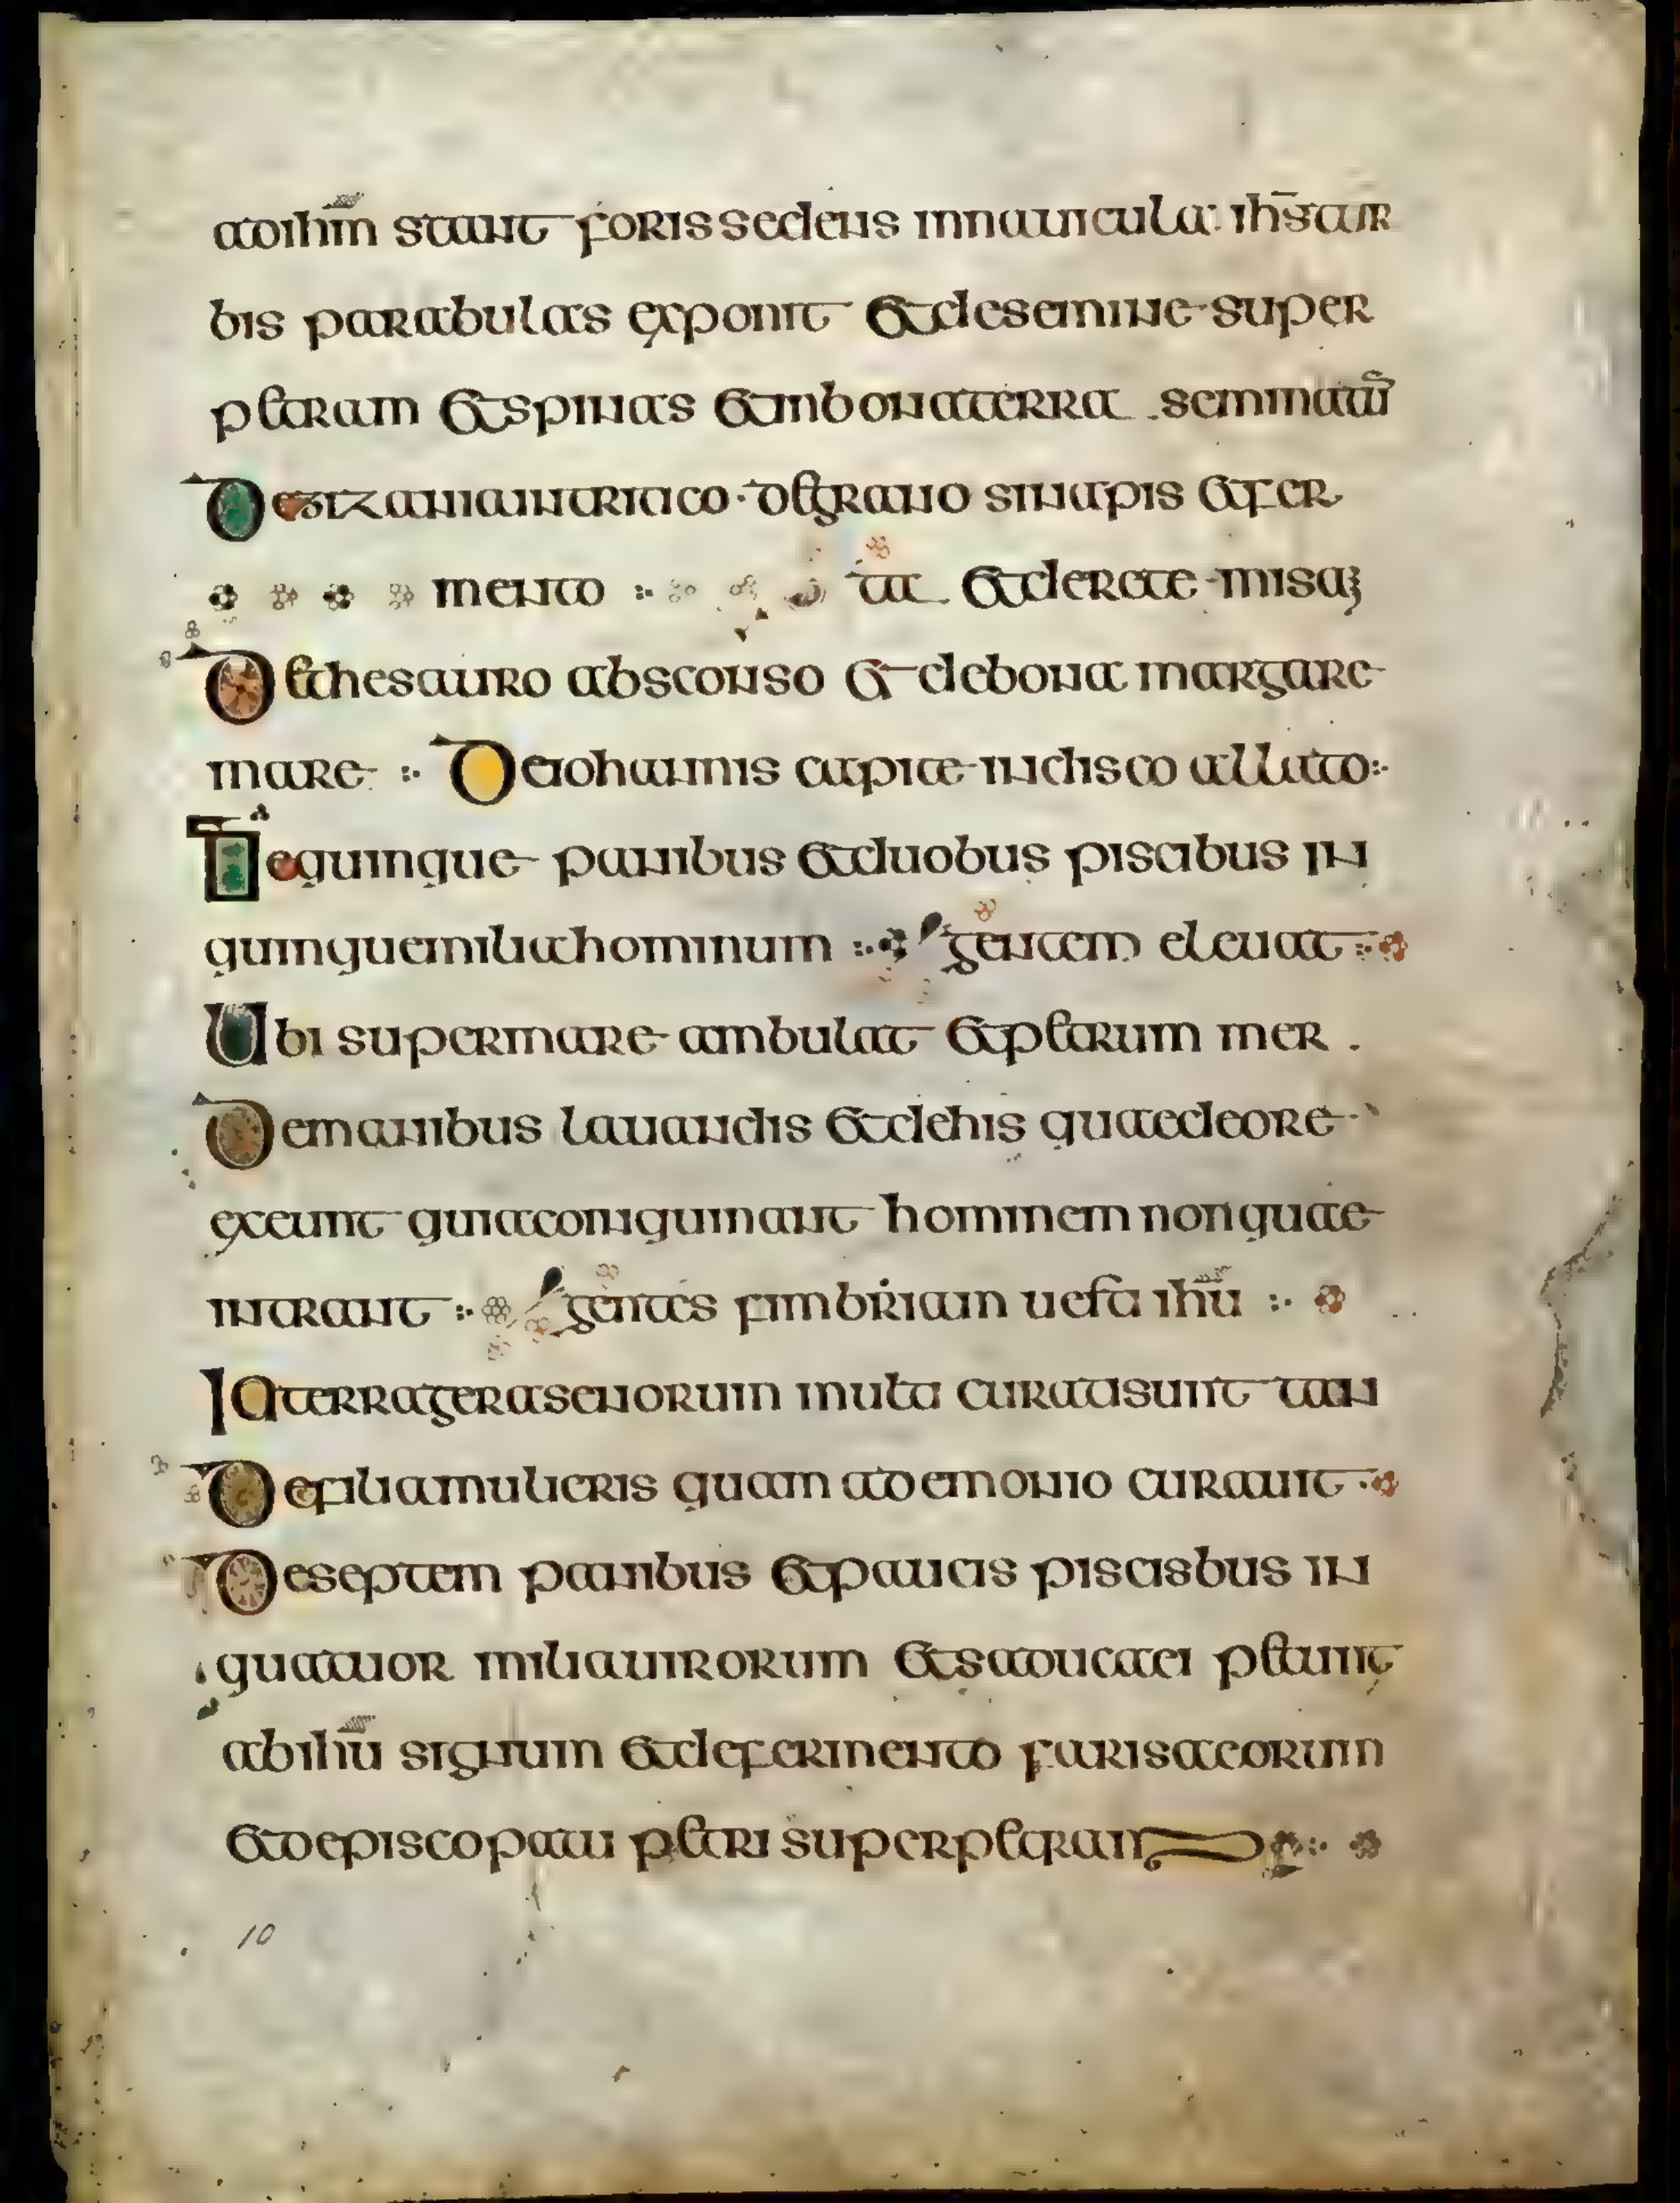 adihm̄ stant foris sedens innauicula: ihs̄ tur
bis parabulas exponit et desemine super
petram et spinas et inbona terra seminatū
De zizania intritico · de grano sinapis et fer
mento :· ta et de rete misaȝ
De thesauro absconso et de bona margare
mare :· De iohannis capite indisco allato :·
De quinque panibus et duobus piscibus in
quinque milia hominum :· gentem eleuat :·
Ubi super mare ambulat et petrum mer .
De manibus lauandis et de his quae de ore
exeunt quia coniquinant hominem non quae
intrant :· gentes fimbriam uesti ihū :·
In terra gerasenorum multi curati sunt tan
De filia mulieris quam a demonio curauit ·
De septem panibus et paucis piscisbus in
quattuor milia uirorum et saducaei petunt
abihū signum et de fermento farisaeorum
et de episcopatu petri super petram :·
10